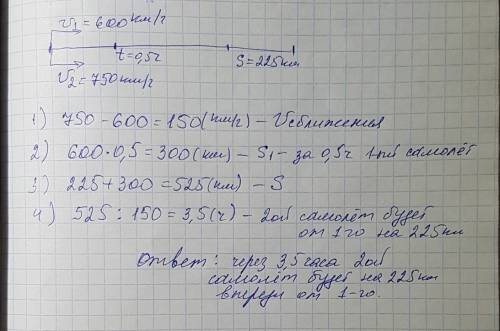 V₁ = 600км/г
t=0,5г
S=225км
V₂ = 750км/г
1) 750 - 600 = 150 (км/г) - Vсближения
2) 600·0,5 = 300 (км) - S₁ - за 0,5г 1-ый самолёт
3) 225+300 = 525 (км) - S
4) 525 : 150 = 3,5 (г) - 2ой самолёт будет
от 1-го на 225км
Ответ: через 3,5 часа 2ой
самолёт будет на 225км
впереди от 1-го.